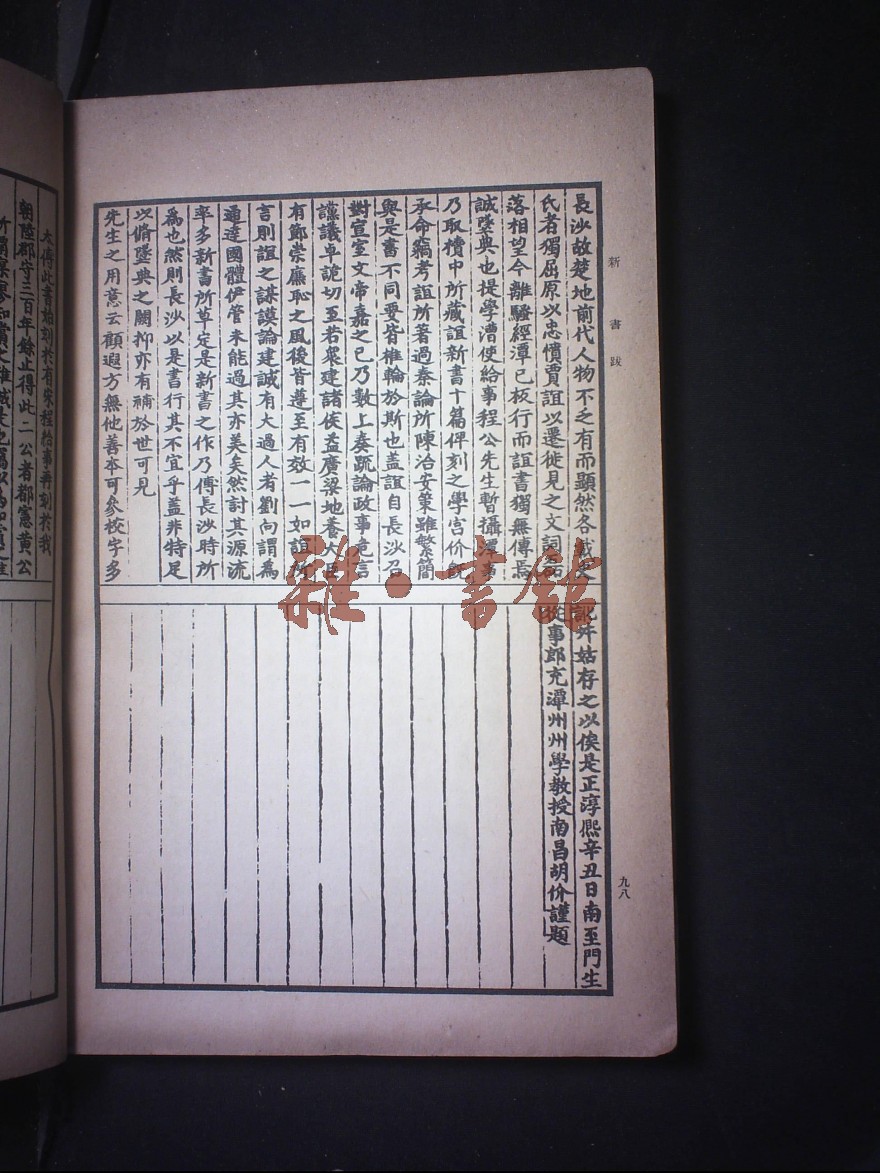 新書跋
長沙故楚地前代人物不乏有而顯然各載史
氏者獨屈原以忠憤賈誼以遷徙見之文詞
落相望今離騷經潭已板行而誼書獨無傳焉
誠墜典也提學漕使給事程公先生暫攝潭事
乃取櫝中所藏誼新書十篇俾刻之學宮价既
承命竊考誼所著過秦論所陳治安策雖繁簡
與是書不同要皆椎輪於斯也盖誼自長沙召
對宣室文帝嘉之已乃數上奏疏論政事危言
讜議卓詭切至若衆建諸侯益廣梁地養大臣
有節崇廉恥之風後皆遵至有效一一如誼所
言則誼之謀謨論建誠有大過人者劉向謂爲
通達國體伊管未能過其亦美矣然討其源流
率多新書所草定是新書之作乃傅長沙時所
爲也然則長沙以是書行其不宜乎蓋非特足
以脩墜典之闕抑亦有補於世可見
先生之用意云顧遐方無他善本可參校字多
訛舛姑存之以俟是正淳熙辛丑日南至門生
從事郎充潭州州學教授南昌胡价謹題
九八
本傳此書始刻於有宋程給事再刻於我
朝陸郡守三百年餘止得此二公者都憲黄公
雜·書館